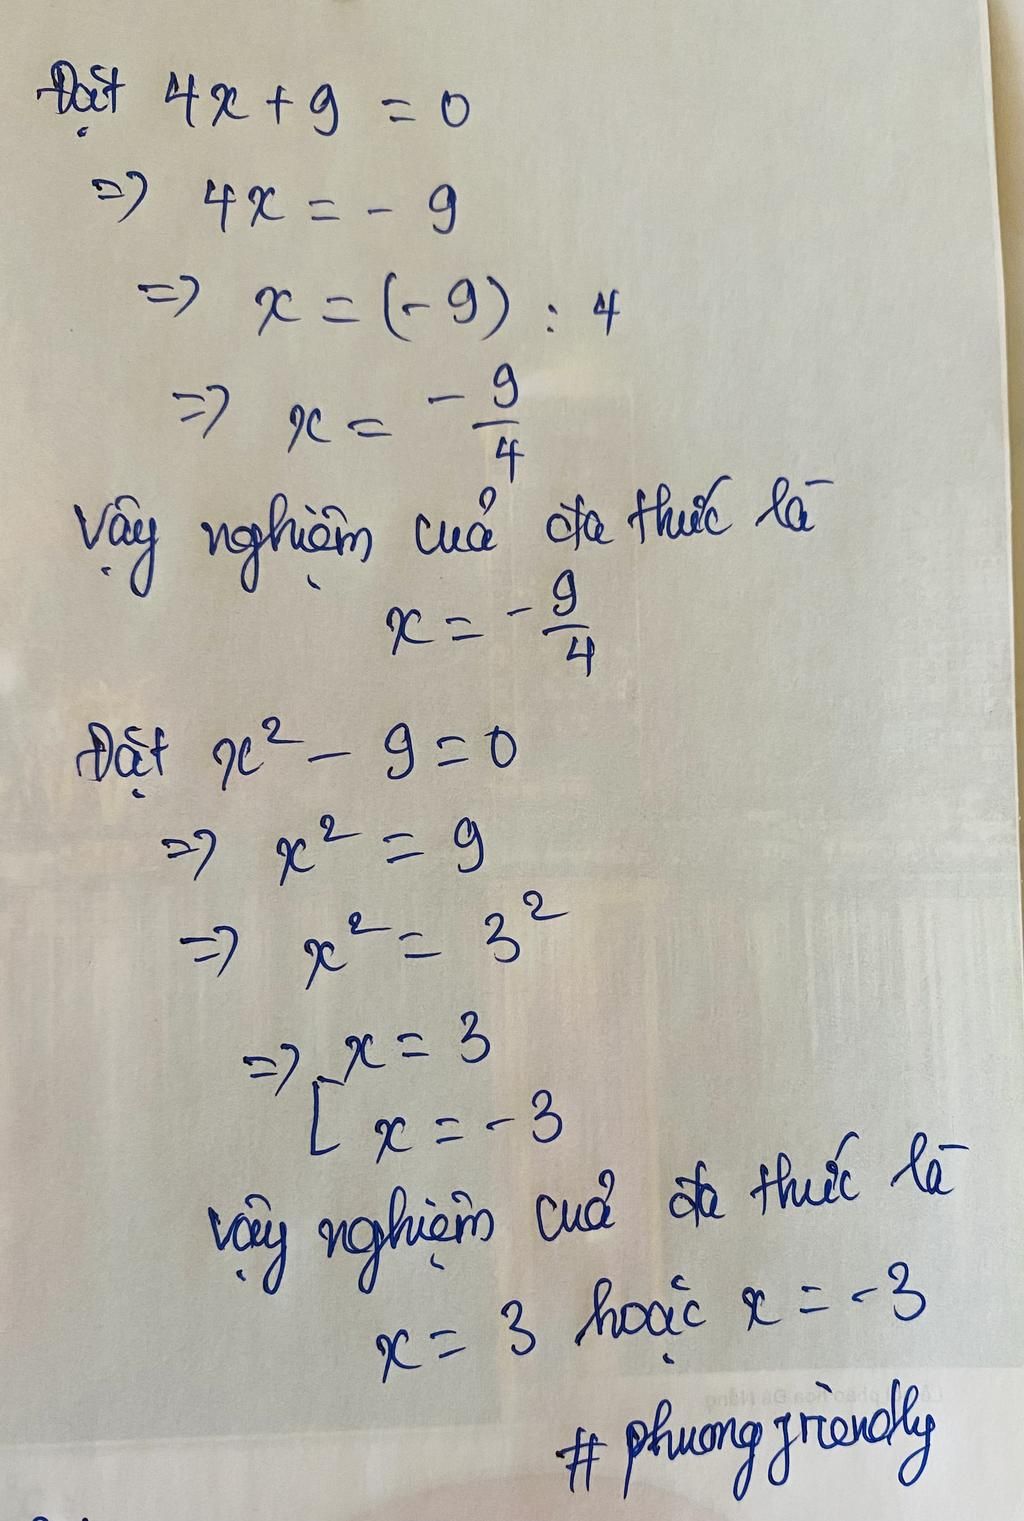 Đặt 4x + 9 = 0
=> 4x = - 9
=> x = (- 9) : 4
=> x = - 9/4
Vậy nghiệm của đa thức là
x = - 9/4
Đặt x² - 9 = 0
=> x² = 9
=> x² = 3²
=> [ x = 3
x = - 3
Vậy nghiệm của đa thức là
x = 3 hoặc x = - 3
# phuongfriendly